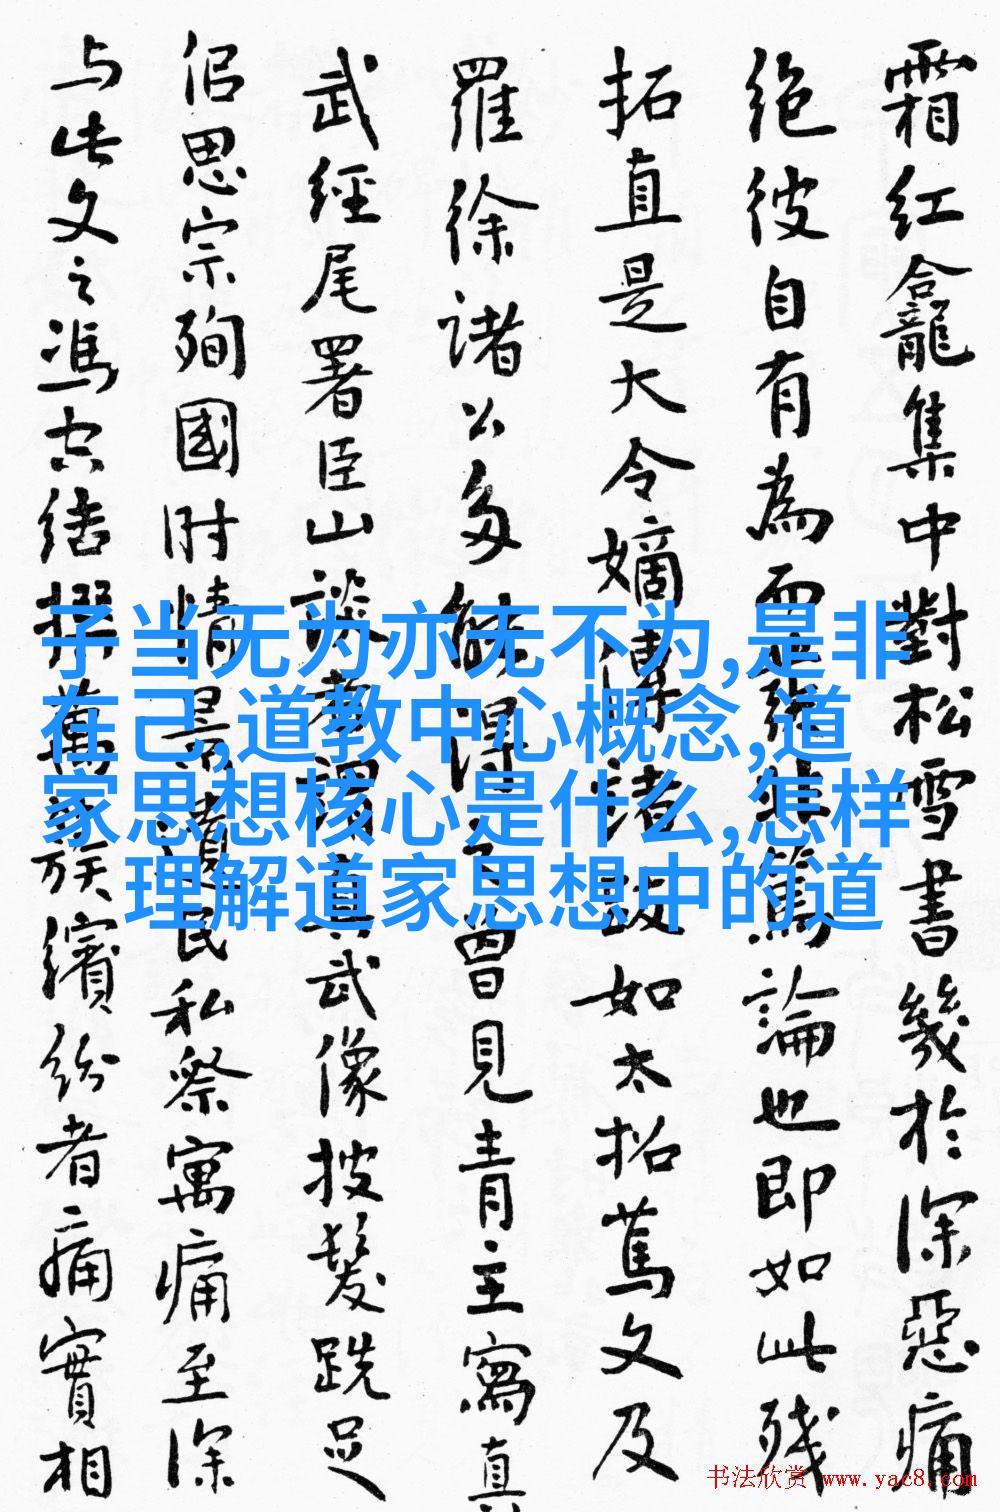 霜红龕集中對松雪書幾於深惡痛
绝彼自有為而非篤論也即如此残
拓直是大令嫡傳諸跋如太拙篤文及
羅徐諸公多能得曾見青主寫真
武經尾署臣山真武像披髮跣足
侣思宗殉國时情景遺民私祭寓痛至深
与此文之馮空结撰萬族繽紛者痛實相
子当无为亦无不为,是非
在己,道教中心概念,道
家思想核心是什么,怎样
理解道家思想中的道
书法欣赏 www.yac8.com